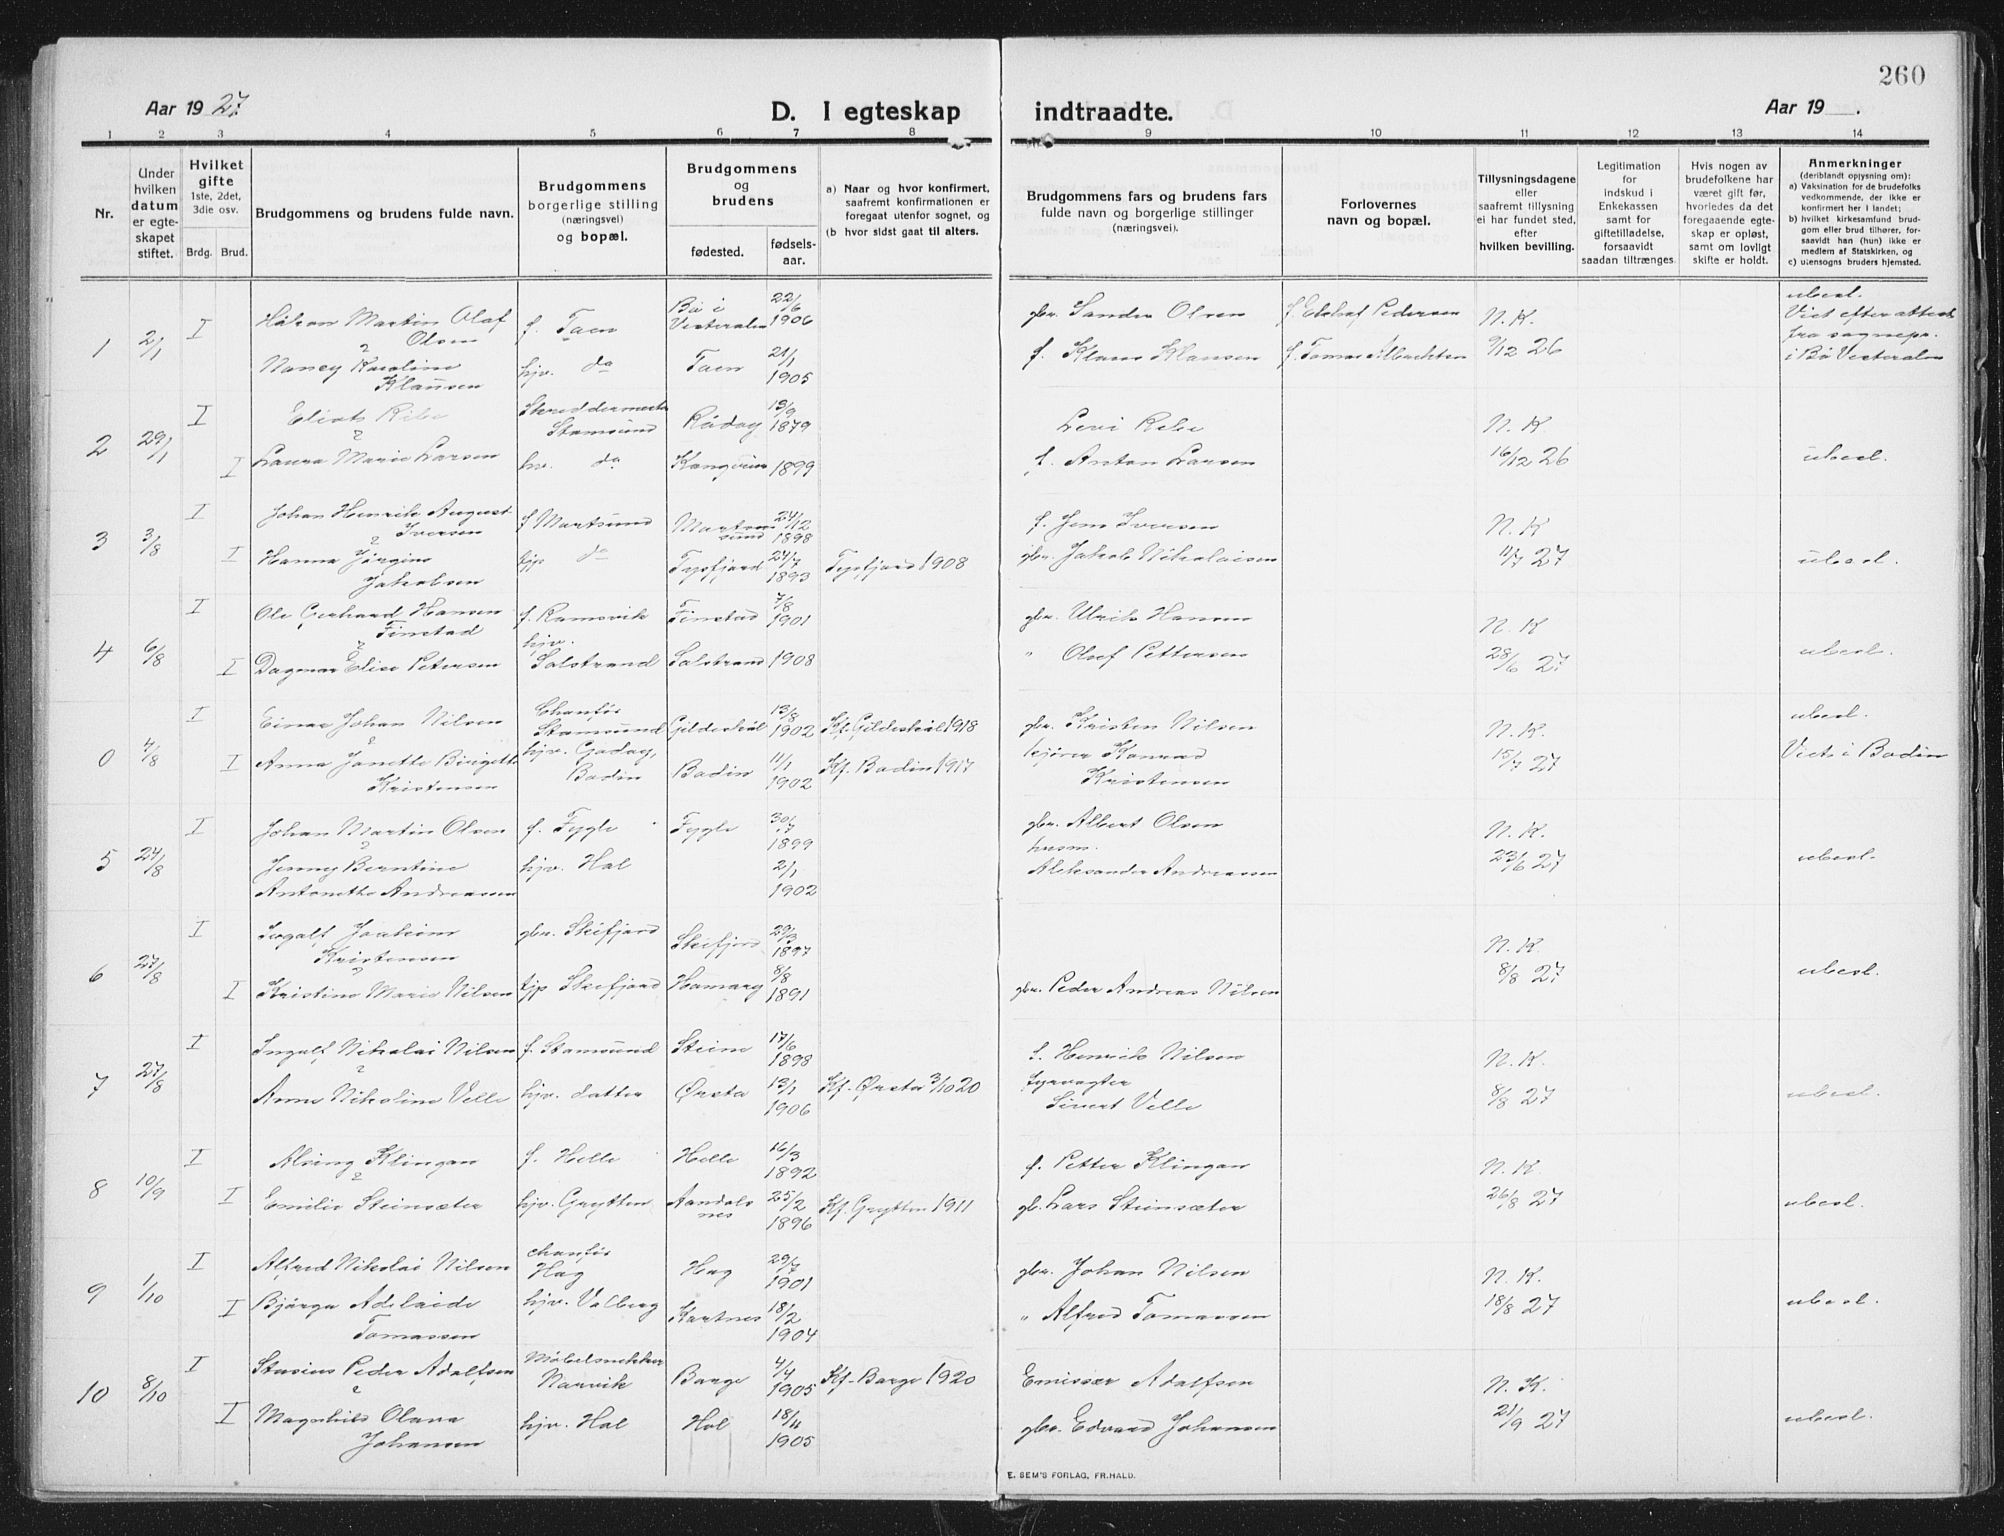 260
Aar 1927
D. I egteskap
indtraadte.
Aar 19 .
1 2 3 4 5 6 7 8 9 10 11 12 13 14
Nr.
Under hvilken datum er egteskapet stiftet.
Hvilket gifte
1ste, 2det, 3die osv.
Brdg. Brud.
Brudgommens og brudens fulde navn.
Brudgommens borgerlige stilling (næringsvei) og bopæl.
Brudgommens og brudens
fødested.
fødselsaar.
a) Naar og hvor konfirmert, saafremt konfirmationen er foregaat utenfor sognet, og
(b hvor sidst gaat til alters.
Brudgommens fars og brudens fars fulde navn og borgerlige stillinger (næringsvei).
Forlovernes navn og bopæl.
Tillysningsdagene eller saafremt tillysning ei har fundet sted, efter hvilken bevilling.
Legitimation for indskud i Enkekassen samt for giftetilladelse, forsaavidt saadan tiltrænges.
Hvis nogen av brudefolkene har været gift før, hvorledes da det foregaaende egteskap er opløst, samt om lovligt skifte er holdt.
Anmerkninger
(deriblandt opysning om):
a) Vaksination for de brudefolks vedkommende, der ikke er konfirmert her i landet;
b) hvilket kirkesamfund brudgom eller brud tilhører, forsaavidt han (hun) ikke er medlem av Statskirken, og
c) utensogns bruders hjemsted.
1 2/1 I Martin Olaf Olsen f. Taen Bø i Vesteralen 22/6 1906 gbr. Sander Olsen Pedersen N. K. ubesl. Viet efter attest fra sognepr. i Bø Vesteralen
Nancy Karoline Klausen hjv. do Taen 21/1 1905 f. Klaus Klausen 9/12 26
2 29/1 I Ribe Skreddermester Stamsund 1879 Levi Ribe N. K
I Laura Marie Larsen hv. do 1899 f. Anton Larsen 16/12 26 ubesl.
3 3/8 I Johan Henrik August Iversen f Mortsund Mortsund 24/12 1898 f. Jens Iversen N. K
I Hanna Jørgine Jakobsen tjp do Tysfjord 24/7 1893 Tysfjord 1908 gbr. Jakob Nikolaisen 11/7 27 ubesl.
4 6/8 I Ole Gerhard Hansen Finstad f. Ramsvik Finstad 7/8 1901 gbr. Ulrik Hansen N. K
I Dagmar Elise Petersen hjv. Solstrand Solstrand 1908 " Olaf Pettersen 28/6 27 ubesl.
0 4/8 I Einar Johan Nilsen Chaufør Stamsund Gildeskål 13/8 1902 Kf. Gildeskål 1918 gbr. Kristen Nilsen N. K. ubesl.
I Anna Janette Birgitte Kristensen hjv. Bodin Bodin 11/1 1902 Kf. Bodin 1917 kjører Konrad Kristensen 15/7 27 Viet i Bodin
5 27/8 I Johan Martin Olsen f. Fygle Fygle 30/7 1899 gbr. Albert Olsen N. K.
Jenny Berntine Antonette Andreassen hjv. Hol 2/1 1902 husm. Aleksander Andreassen 23/6 27 ubesl.
6 27/8 I Joakim Kristensen gbr. Skifjord Skifjord 29/3 1897 N. K.
I Kristine Marie Nilsen tjp Skifjord Hamarøy 8/8 1891 gbr. Peder Andreas Nilsen 8/8 27 ubesl.
7 27/8 I Ingolf Nikolai Nilsen f. Stamsund Steine 17/6 1898 f. Henrik Nilsen N. K.
Anna Nikoline Velle hjv. datter Ørsta 13/1 1906 Kf. Ørsta 3/10 20 fyrvogter Sivert Velle 8/8 27 ubesl.
8 10/9 I Alsing Klingan f. Helle Helle 16/3 1892 f. Petter Klingan N. K.
I Emilie Steinsæter hjv. Grytten Aandalsnes 25/2 1896 Kf. Grytten 1911 gb. Lars Steinsæter 26/8 27 ubesl.
9 1/10 I Alfred Nikolai Nilsen chaufør Hag Hag 29/7 1901 gbr. Johan Nilsen N. K.
I Bjørga Adelaide Tomassen hjv. Valberg Kartnes 18/2 1904 " Alfred Tomassen 18/8 27 ubesl.
10 8/10 I Peder Adolfsen Møbelsnekker Narvik Borge 4/4 1905 Kf. Borge 1920 Emissær Adolfsen N. K.
I Magnhild Olava Johansen hjv. Hol Hol 18/4 1905 gbr. Edvard Johansen 21/9 27 ubesl.
E. SEM'S FORLAG, FR.HALD.